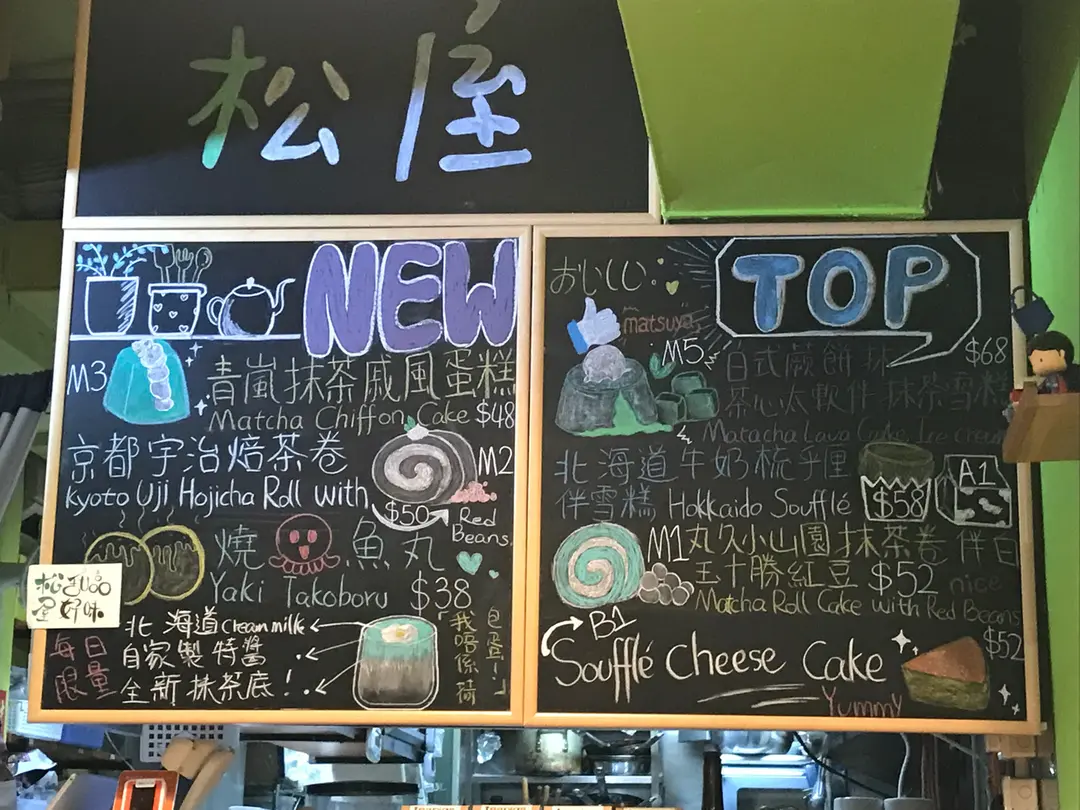 松屋
NEW
M3
青嵐抹茶戚風蛋糕
Matcha Chiffon Cake $48
京都宇治焙茶卷
M2
Kyoto Uji Hojicha Roll with
$50
Red
Beans.
燒 魚丸
Yaki Takoboru $38
北海道Cream milk
自家製特醬
全新抹茶底!
每日
限量
「我唔係荷
包蛋!」
好味
おいしい
TOP
matsuya
M5
日式蕨餅抹 $68
茶心太軟伴抹茶雪糕
Matacha Lava Cake, Ice cream
北海道牛奶梳乎厘
伴雪糕 Hokkaido Soufflé $58
A1
M1 丸久小山園抹茶卷伴白
玉十勝紅豆 $52 nice
Matcha Roll Cake with Red Beans
B1
$52
Soufflé Cheese Cake
Yummy